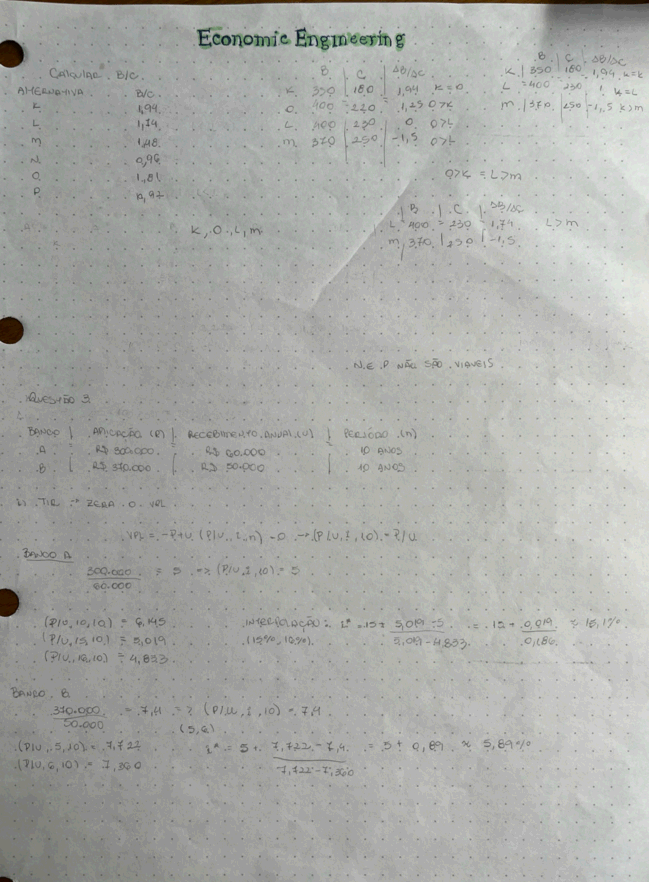 Economic Engineering
CALCULAR B/C
ALTERNATIVA B/C
K 1,94
L 1,74
M 1,48
N 0,96
O 1,81
P 0,92
B | C | ΔB/ΔC
K 350 | 180 | 1,94 K=0
O 400 220 1,25 O>K
L 400 230 0 O>L
M 370 250 -1,5 O>L
B | C | ΔB/ΔC
K | 350 | 180 | 1,94 K=K
L 400 230 1 K=L
M 370 250 -1,5 K>M
O>K = L>M
K, O, L, M
| B | C | ΔB/ΔC
L 400 = 230 = 1,74 L>M
M 370 | 250 | -1,5
N E P NÃO SÃO VIAVEIS
QUESTÃO 3
BANCO | APLICAÇÃO (P) | RECEBIMENTO ANUAL (U) | PERÍODO (n)
A R$ 300.000 R$ 60.000 10 ANOS
B R$ 370.000 R$ 50.000 10 ANOS
TIR → ZERA O VPL
VPL = -P+U (P/U, I, n) = 0 → (P/U, I, 10) = P/U
BANCO A
300.000 / 60.000 = 5 => (P/U, I, 10) = 5
(P/U, 10, 10) = 6,145
(P/U, 15, 10) = 5,019
(P/U, 16, 10) = 4,833
INTERPOLAÇÃO: I* = 15 + 5,019-5 / 5,019-4,833 = 15 + 0,019 / 0,186 ≈ 15,1%
BANCO B
370.000 / 50.000 = 7,4 => (P/U, I, 10) = 7,4
(5,6)
(P/U, 5, 10) = 7,722
(P/U, 6, 10) = 7,360
I* = 5 + 7,722-7,4 / 7,722-7,360 = 5 + 0,89 ≈ 5,89%